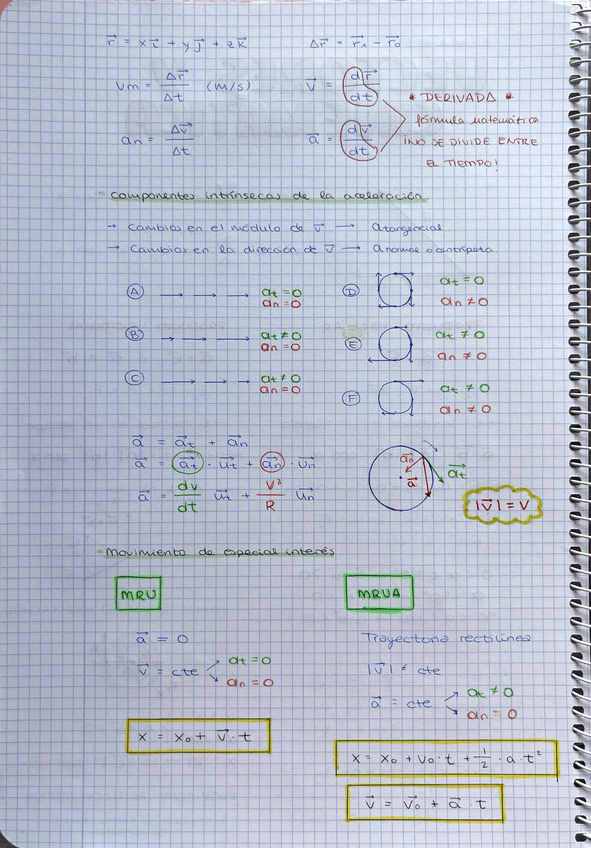 r⃗ = x i⃗ + y j⃗ + z k⃗    Δr⃗ = r⃗₁ - r⃗₀
Vm = Δr⃗ / Δt (m/s)    v⃗ = dr⃗ / dt
am = Δv⃗ / Δt    a⃗ = dv⃗ / dt
* DERIVADA *
fórmula matemática
¡NO SE DIVIDE ENTRE
EL TIEMPO!
componentes intrínsecas de la aceleración
→ Cambios en el módulo de v⃗ → a tangencial
→ Cambios en la dirección de v⃗ → a normal o centrípeta
A → → → at = 0 an = 0
B → → → at ≠ 0 an = 0
C → → → at ≠ 0 an = 0
D at = 0 an ≠ 0
E at ≠ 0 an ≠ 0
F at ≠ 0 an ≠ 0
a⃗ = a⃗t + a⃗n
a⃗ = a⃗t · u⃗t + a⃗n · u⃗n
a⃗ = dv/dt u⃗t + V²/R u⃗n
a⃗n a⃗ a⃗t
|v⃗| = v
Movimiento de especial interés
MRU
a⃗ = 0
v⃗ = cte at = 0 an = 0
x = x₀ + v⃗ · t
MRUA
Trayectoria rectilínea
|v⃗| ≠ cte
a⃗ = cte at ≠ 0 an = 0
x = x₀ + v₀ · t + 1/2 · a · t²
v⃗ = v⃗₀ + a⃗ · t